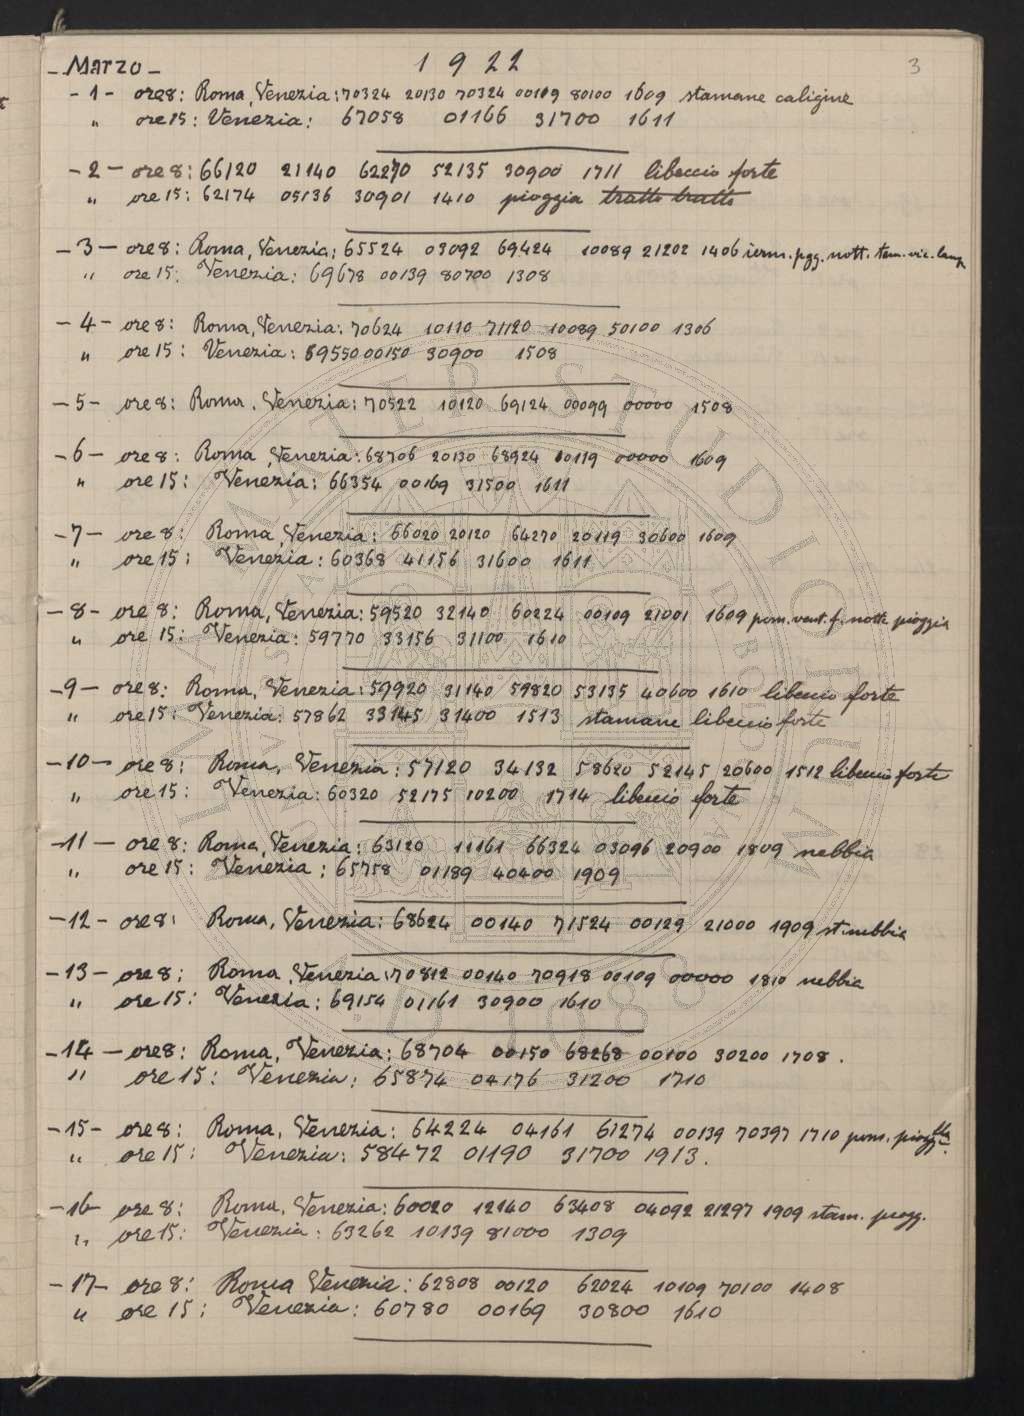 - Marzo -
1922
3
- 1 - ore 8: Roma, Venezia: 70324 20130 70324 00109 80100 1609 stamane caligine
" ore 15: Venezia: 67058 01166 31700 1611
- 2 - ore 8: 66120 21140 62270 52135 30900 1711 libeccio forte
" ore 15: 62174 05136 30901 1410 pioggia tratto tratto
- 3 - ore 8: Roma, Venezia: 65524 03092 69424 10089 21202 1406 pgg. nott.
" ore 15: Venezia: 69678 00139 80700 1308
- 4 - ore 8: Roma, Venezia: 70624 10110 71120 10089 50100 1306
" ore 15: Venezia: 69550 00150 30900 1508
- 5 - ore 8: Roma, Venezia: 70522 10120 69124 00099 00000 1508
- 6 - ore 8: Roma, Venezia: 68706 20130 68924 10119 00000 1609
" ore 15: Venezia: 66354 00169 31500 1611
- 7 - ore 8: Roma, Venezia: 66020 20120 64270 20119 30600 1609
" ore 15: Venezia: 60368 41156 31600 1611
- 8 - ore 8: Roma, Venezia: 59520 32140 60224 00109 21001 1609 pom. vent. f. notte pioggia
" ore 15: Venezia: 59770 33156 31100 1610
- 9 - ore 8: Roma, Venezia: 59920 31140 59820 53135 40600 1610 libeccio forte
" ore 15: Venezia: 57862 33145 31400 1513 stamane libeccio forte
- 10 - ore 8: Roma, Venezia: 57120 34132 58620 52145 20600 1512 libeccio forte
" ore 15: Venezia: 60320 52175 10200 1714 libeccio forte
- 11 - ore 8: Roma, Venezia: 63120 11161 66324 03096 20900 1809 nebbia
" ore 15: Venezia: 65758 01189 40400 1909
- 12 - ore 8: Roma, Venezia: 68624 00140 71524 00129 21000 1909 st. nebbia
- 13 - ore 8: Roma, Venezia: 70812 00140 70918 00109 00000 1810 nebbia
" ore 15: Venezia: 69154 01161 30900 1610
- 14 - ore 8: Roma, Venezia: 68704 00150 68268 00100 30200 1708.
" ore 15: Venezia: 65874 04176 31200 1710
- 15 - ore 8: Roma, Venezia: 64224 04161 61274 00139 70397 1710 pom.
" ore 15: Venezia: 58472 01190 31700 1913.
- 16 - ore 8: Roma, Venezia: 60020 12140 63408 04092 21297 1909 stam. piogg.
" ore 15: Venezia: 63262 10139 81000 1309
- 17 - ore 8: Roma Venezia: 62808 00120 62024 10109 70100 1408
" ore 15: Venezia: 60780 00169 30800 1610